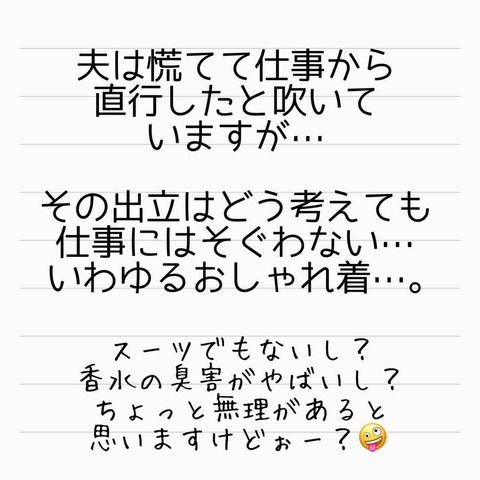 夫は慌てて仕事から
直行したと吹いて
いますが…
その出立はどう考えても
仕事にはそぐわない…
いわゆるおしゃれ着…。
スーツでもないし？
香水の臭害がやばいし？
ちょっと無理があると
思いますけどぉー？🤪